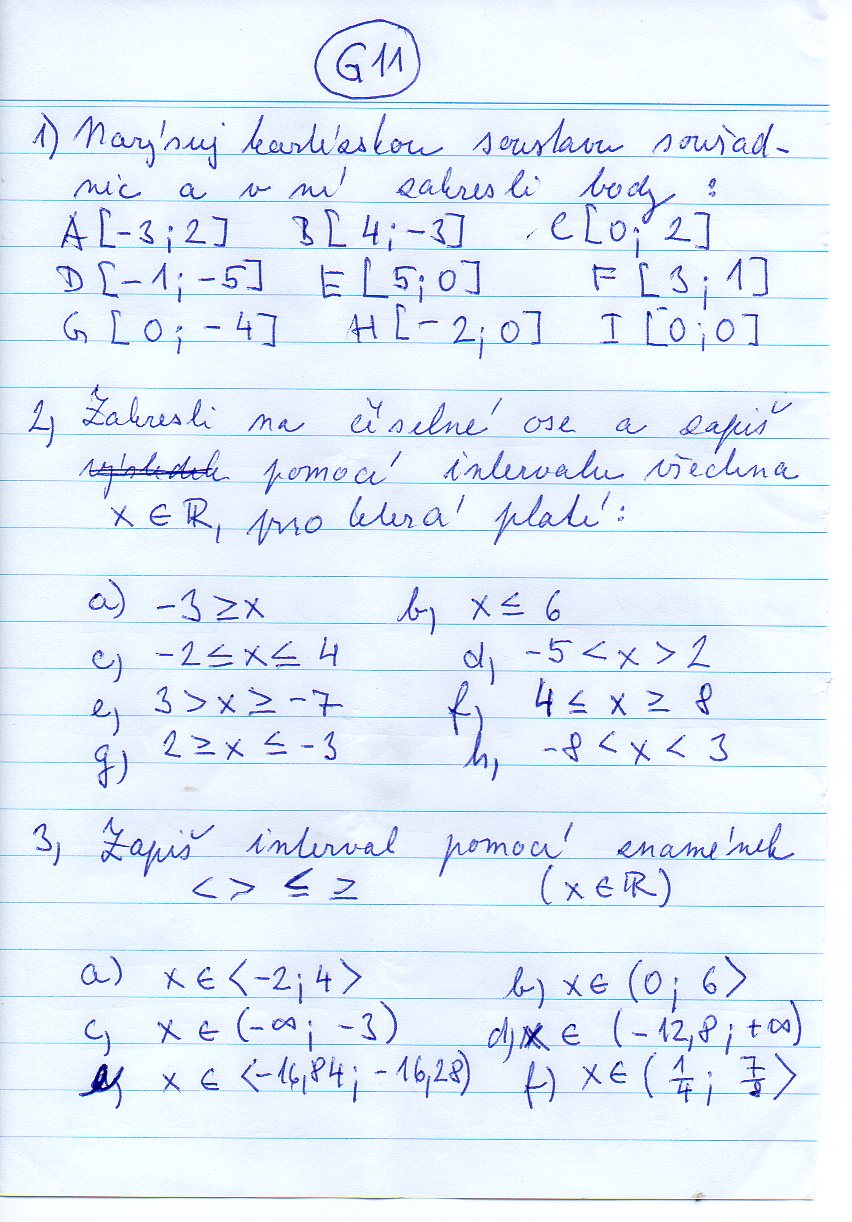 G11
1) Narýsuj kartézskou soustavu souřad-
nic a v ní zakresli body :
A [-3 ; 2] B [ 4 ; -3] C [0 ; 2]
D [-1 ; -5] E [5 ; 0] F [3 ; 1]
G [ 0 ; -4] H [-2 ; 0] I [0 ; 0]
2) Zakresli na číselné ose a zapiš
výsledek pomocí intervalu všechna
x ∈ ℝ, pro která platí :
a) -3 ≥ x b) x ≤ 6
c) -2 ≤ x ≤ 4 d) -5 < x > 2
e) 3 > x ≥ -7 f) 4 ≤ x ≥ 8
g) 2 ≥ x ≤ -3 h) -8 < x < 3
3) Zapiš interval pomocí znamének
< > ≤ ≥ (x ∈ ℝ)
a) x ∈ ⟨-2 ; 4⟩ b) x ∈ (0 ; 6⟩
c) x ∈ (-∞ ; -3) d) x ∈ (-12,8 ; +∞)
e) x ∈ ⟨-16,84 ; -16,28) f) x ∈ (1/4 ; 7/8⟩